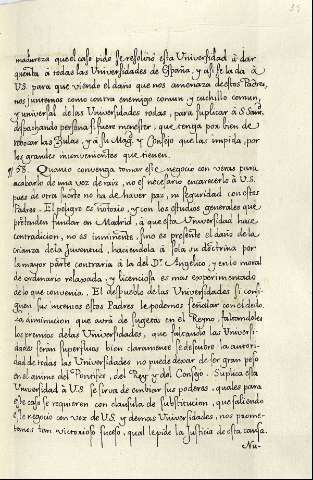 34
madureza que el caso pide se resolvio esta Universidad à dar
quenta à todas las Universidades de España, y assi se la da à
V.S. para que viendo el daño que nos amenaza destos Padres,
nos juntemos como contra enemigo comun, y cuchillo comun,
y universal de las Universidades todas, para suplicar à S. Sant.
despachando persona si fuere menester, que tenga por bien de
revocar las Bulas, y à su Mag. y Consejo que las impida, por
los grandes inconvenientes que tienen.
58. Quanto convenga tomar este negocio con veras para
acabarlo de una vez de raiz, no es necesario encarecerlo à V.S.
pues de otra suerte no ha de haver paz, ni seguridad con estos
Padres. El peligro es notorio, y con los estudios generales que
pretenden fundar en Madrid, à que esta Universidad hace
contradicion, no es imminente, sino es presente el daño de la
crianza de la Juventud, haciendola à sola su doctrina por
la mayor parte contraria à la del Dr. Angelico, y en lo moral
de ordinario relaxada, y licenciosa es mas experimentado
de lo que convenia. El despueblo de las Universidades si consi-
guen sus intentos estos Padres le podemos señalar con el dedo.
La diminucion que avrà de sugetos en el Reyno, faltandoles
los premios de las Universidades, que faltando las Universi-
dades seràn superfluos bien claramente se descubre la autori-
dad de todas las Universidades no puede dexar de ser gran peso
en el animo del Pontifice, del Rey y del Consejo. Suplica esta
Universidad à V.S. se sirva de embiar sus poderes, quales para
este caso se requieren con clausula de substitucion, que saliendo
este negocio con voz de V.S. y demas Universidades, nos prome-
temos tan victorioso suceso, qual le pide la Justicia de esta causa.
Nu-